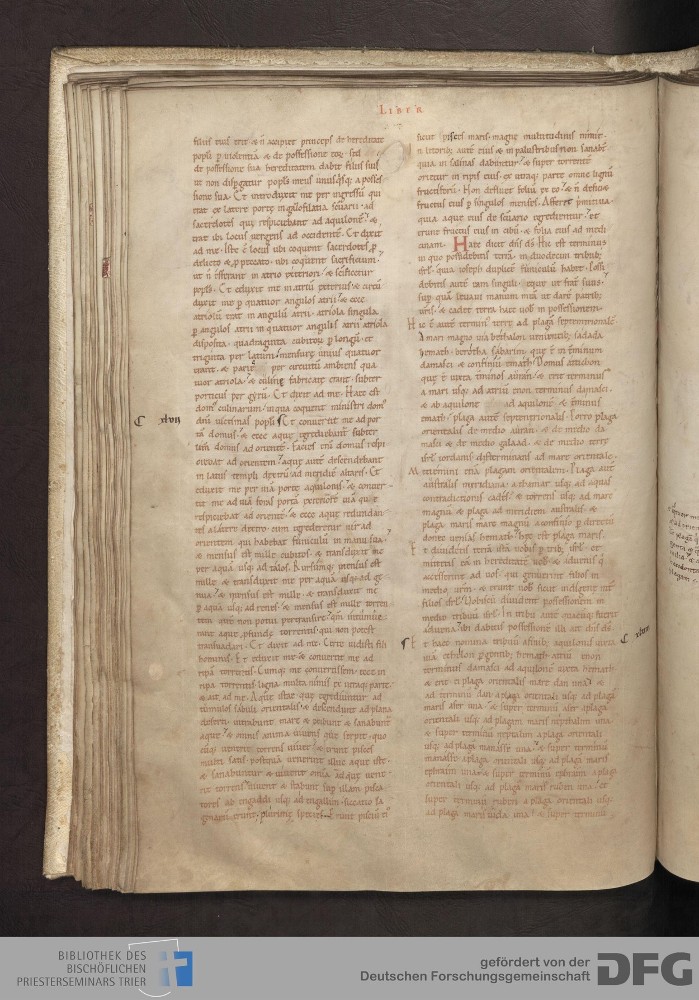 LIBER
filiis tuis erit & ñ accipiet princeps de hereditate
popli p violentiã & de possessione eoꝝ sed
de possessione sua hereditatem dabit filiis suis
ut non dispgatur popls meus unusqsq; a posses
sione sua. Et introduxit me per ingressũ qui
erat ex latere porte in gazofilatia sc̃uarii ad
sacerdotes que respiciebant ad aquilonẽ. &
erat ibi locus uergens ad occidentẽ. Et dixit
ad me. Iste ẽ locus ubi coquent sacerdotes p
delicto & p peccato. ubi coquent sacrificium
ut ñ efferant in atrio exteriori & sc̃ificetur
popls. Et eduxit me in atriũ exterius & circũ
duxit me p quatuor angulos atrii & ecce
atriolũ erat in angulũ atrii. atriola singula
p angulos atrii in quatuor angulis atrii atriola
disposita. quadraginta cubitoꝝ p longũ. et
triginta per latum. mensure unius quatuor
erant. & paries per circuitũ ambiens qua
tuor atriola. & culine fabricate erant subter
porticus per gyrũ. Et dixit ad me. Haec est
dom culinarum in qua coquent ministri dom
dni uictimas popli. Et conuertit me ad por
tã domus. & ecce aque egrediebantur subter
limẽ domus ad orientẽ. facies enĩ domus respi
ciebat ad orientem. aque autẽ descendebant
in latus templi dextrũ ad meridiẽ altaris. Et
eduxit me per uiã porte aquilonis. & conuer
tit me ad uiã foras portã exteriorẽ uiã que
respiciebat ad orientẽ. & ecce aque redundan
tes a latere dextro. cum egrederetur uir ad
orientem qui habebat funiculũ in manu sua.
& mensus est mille cubitos. & transduxit me
per aquã usq; ad talos. Rursumq; mensus est
mille & transduxit me per aquã usq; ad ge
nua. & mensus est mille. & transduxit me
p aquã usq; ad renes. & mensus est mille torren
tem quẽ non potui pertransire. qm intumue
rant aque pfunde torrentis qui non potest
transuadari. Et dixit ad me. Certe uidisti fili
hominis. Et eduxit me & conuertit me ad
ripã torrentis. Cumq; me conuertissem ecce in
ripa torrentis ligna multa nimis ex utraq; parte.
& ait ad me. Aque iste que egrediuntur ad
tumulos sabuli orientalis & descendunt ad plana
deserti. intrabunt mare & exibunt & sanabunt
aque. & omnis anima uiuens que serpit. quo
cũq; uenerit torrens uiuet. & erunt pisces
multi satis postquã uenerint illuc aque iste.
& sanabuntur & uiuent omĩa ad que uene
rit torrens. uiuent & stabunt sup illam pisca
tores ab engaddi usq; ad engallim siccatio sa
genarũ erunt. plurime species erunt pisciũ ei
sicut pisces maris magne multitudinis nimie.
in litorib; autẽ eius & in palustribus non sanabũ
quia in salinas dabuntur. & super torrentẽ
orietur in ripis eius. ex utraq; parte omne lignũ
fructiferũ. Non defluet foliũ ex eo. & ñ deficiẽ
fructus eius p singulos menses. Afferet primitiua.
quia aque eius de sc̃uario egredientur. et
erunt fructus eius in cibũ & folia eius ad medi
cinam. Haec dicit dns ds. Hic est terminus
in quo possidebitis terrã in duodecim tribub;
isrl. quia ioseph duplicẽ funiculũ habet. Possi
debitis autẽ eam singuli eque ut frat suus.
sup quã leuaui manum meã ut darẽ patrib;
uris. & cadet terra haec uob in possessionem.
Hic ẽ autẽ terminus terre ad plagã septentrionalẽ.
A mari magno uia bethalon uenientib; sadada
hemath. berotha sabarim que ẽ int tminum
damasci. & confiniũ emath. Domus atticon
que ẽ iuxta tminos auran. & erit terminus
a mari usq; ad atriũ enon terminus damasci.
& ab aquilone ad aquilonẽ & tminus
emath. plaga autẽ septentrionalis. Porro plaga
orientalis de medio auran. & de medio da
masci & de medio galaad. & de medio terre
isrl. iordanis disterminans ad mare orientale.
Metiemini etiã plagam orientalem. Plaga autẽ
australis meridiana. a thamar usq; ad aquas
contradictionis cades. & torrens usq; ad mare
magnũ & plaga ad meridiem australis. &
plaga maris mare magnũ a confinio p directũ
donec uenias hemath. hec est plaga maris.
Et diuidetis terrã istã uobis p trib; isrl. et
mittetis eã in hereditatẽ uob & aduenis q
accesserint ad uos. qui genuerint filios in
medio urm. & erunt uob sicut indigene int
filios isrl. Vobiscũ diuident possessionem in
medio tribuũ isrl. In tribu autẽ quacũq; fuerit
aduena. ibi dabitis possessionẽ illi ait dns ds.
Et haec nomina tribuũ a finib; aquilonis iuxta
uiã ethalon pgentib; hemath. atriũ enon
terminus damasci ad aquilonẽ iuxta hemath.
& erit ei plaga orientalis mare dan una. &
ad terminũ dan a plaga orientali usq; ad plagã
maris aser una. & super terminũ aser a plaga
orientali usq; ad plagam maris neptalim una.
& super terminũ neptalim a plaga orientali
usq; ad plaga manasse una. & super terminũ
manasse a plaga orientali usq; ad plagã maris
ephraim una. & super terminũ ephraim a plaga
orientali usq; ad plagã maris ruben una. et
super terminũ ruben a plaga orientali usq;
ad plagã maris iuda una. & super terminũ
C xlvii
C xlviii
BIBLIOTHEK DES
BISCHÖFLICHEN
PRIESTERSEMINARS TRIER
gefördert von der
Deutschen Forschungsgemeinschaft
DFG